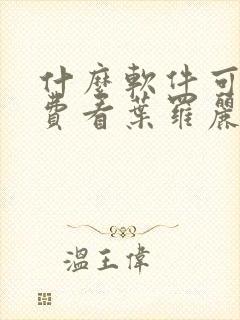 什麼軟件可
費看葉羅麗
溫王偉